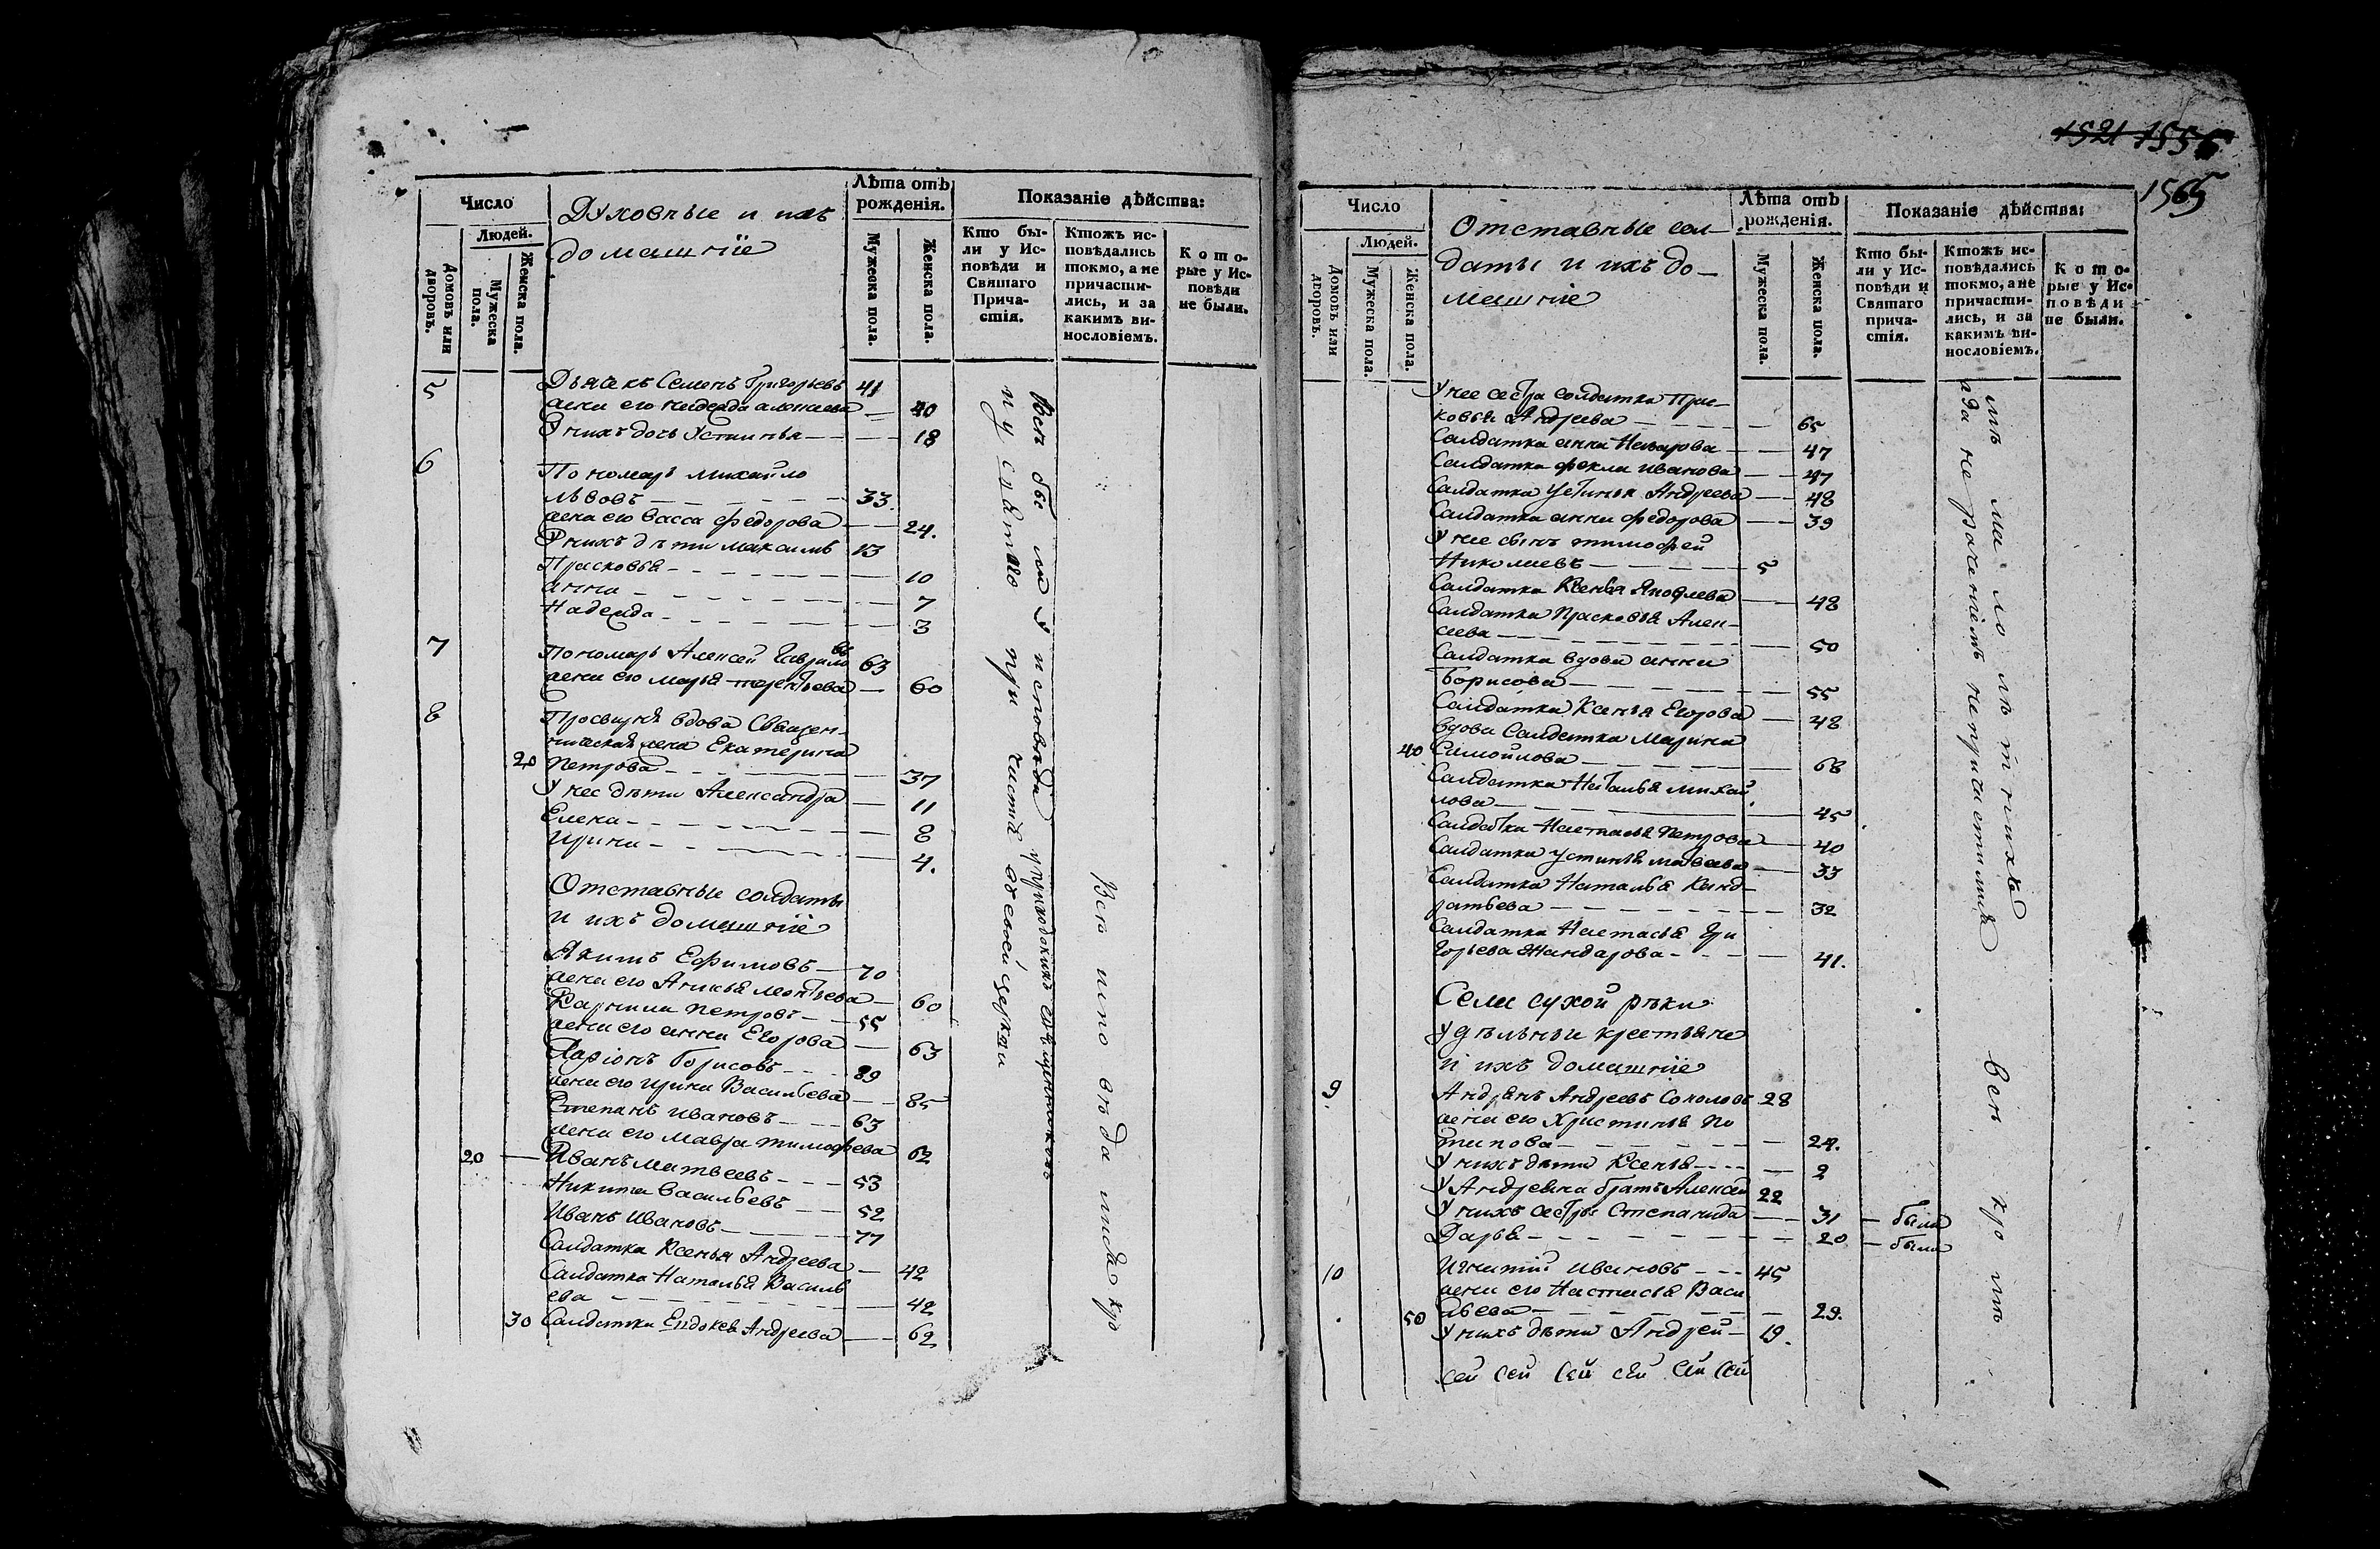 Число
Людей.
Домовъ или дворовъ.
Мужеска пола.
Женска пола.
Духовные и ихъ
домашніе
Лѣта отъ рожденія.
Мужеска пола.
Женска пола.
Показаніе дѣйства:
Кто бы-
ли у Ис-
повѣди и
Святаго
Прича-
стія.
Ктожъ ис-
повѣдались
токмо, а не
причасти-
лись, и за
какимъ ви-
нословіемъ.
Кото-
рые у Ис-
повѣди
не были.
5 Дьячекъ Семенъ Григорьевъ 41
жена его Надежда Алексеева 40
У нихъ дочь Устинья 18
6 Пономарь Михайло
Львовъ 33
жена его Васса Федорова 24.
У нихъ дѣти Максимъ 13
Прасковья 10
Анна 7
Надежда 3
7 Пономарь Алексей Гаврило въ 63
жена его Марья Терентьева 60
8 Просвирня вдова Священ-
ническая жена Екатерина
20 Петрова 37
У нее дѣти Александра 11
Елена 8
Ирина 4.
Отставные солдаты
и ихъ домашніе
Якимъ Ефимовъ 70
жена его Анисья Леонтьева 60
Карнила Петровъ 55
жена его Анна Егорова 63
Ларіонъ Борисовъ 89
жена его Ирина Васильева 85
Степанъ Ивановъ 63
жена его Мавра Тимофеева 62
20 Иванъ Матвеевъ 53
Никита Васильевъ 52
Иванъ Ивановъ 77
Салдатка Ксенья Андреева 42
Салдатка Наталья Василь
ева 42
30 Салдатка Евдокея Андреева 62
Все бы ли у исповѣда
и у святаго при частія въ своей церкви
у приходскихъ священниковъ
Вси испо вѣда лися кро
1521 1556
1565
Число
Людей.
Домовъ или дворовъ.
Мужеска пола.
Женска пола.
Отставные сол-
даты и ихъ до-
машніе
Лѣта отъ
рожденія.
Мужеска пола.
Женска пола.
Показаніе дѣйства:
Кто бы-
ли у Ис-
повѣди и
Святаго
прича-
стія.
Ктожъ ис-
повѣдались
токмо, а не
причасти-
лись, и за
какимъ ви-
нословіемъ.
Кото-
рые у Ис-
повѣди
не были.
У нее сестра солдатка Прас-
ковья Андреева 65
Салдатка Анна Назарова 47
Салдатка Фекла Иванова 47
Салдатка Устинья Андреева 48
Салдатка Анна Федорова 39
У нее сынъ Тимофей
Николаевъ 5
Салдатка Ксенья Яковлева 48
Салдатка Прасковья Алек-
сеева 50
Салдатка вдова Анна
Борисова 55
Салдатка Ксенья Егорова 48
вдова Салдатка Марина
40 Самойлова 68
Салдатка Наталья Михай
лова 45
Салдатка Настасья Петрова 40
Салдатка Устинья Матвеева 33
Салдатка Наталья Канд-
ратьева 32
Салдатка Настасья Гри
горьева Жандарова 41.
Села сухой рѣки
удѣльныи крестьяне
и ихъ домашніе
9 Андрѣянъ Андреевъ Соколовъ 28
жена его Христинья По
тапова 24.
У нихъ дѣти Ксенья 2
У Андреяна братъ Алексей 22
У нихъ сестры Степанида 31 была
Дарья 20 была
10 Игнатій Ивановъ 45
жена его Настасья Васи
50 льева 29.
У нихъ дѣти Андрей 19.
сей сей сей сей сей сей
мѣ ма ло лѣ т нихъ
а за нераченіемъ непричастились
Вси кро мѣ